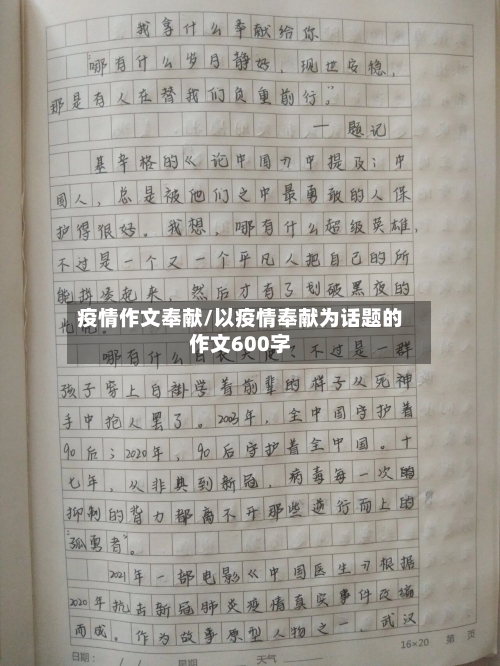 我拿什么奉献给你
"哪有什么岁月静好,现世安稳,
那是有人在替我们负重前行。"
—题记
基辛格的《论中国》中提及:中
国人,总是被他们之中最勇敢的人保
护得很好。我想,哪有什么超级英雄,
不过是一个又一个平凡人把自己的所
能拼凑起来,然后才有了划破黑夜的
疫情作文奉献/以疫情奉献为话题的
作文600字
哪有什么白衣天使:不过是一群
孩子穿上白褂学着前辈的样子从死神
手中抢人罢了。2003年,全中国守护着
90后;2020年,90后守护着全中国。十
七年,从非典到新冠,病毒每一次的
抑制的背力都离不开那些逆行而上的
"孤勇者"。
2021年一部电影《中国医生》根据
2020年抗击新冠肺炎疫情真实事件改编
而成。作为故事原型人物之一,武汉
16×20 第 页
日期: / / 星期 天气